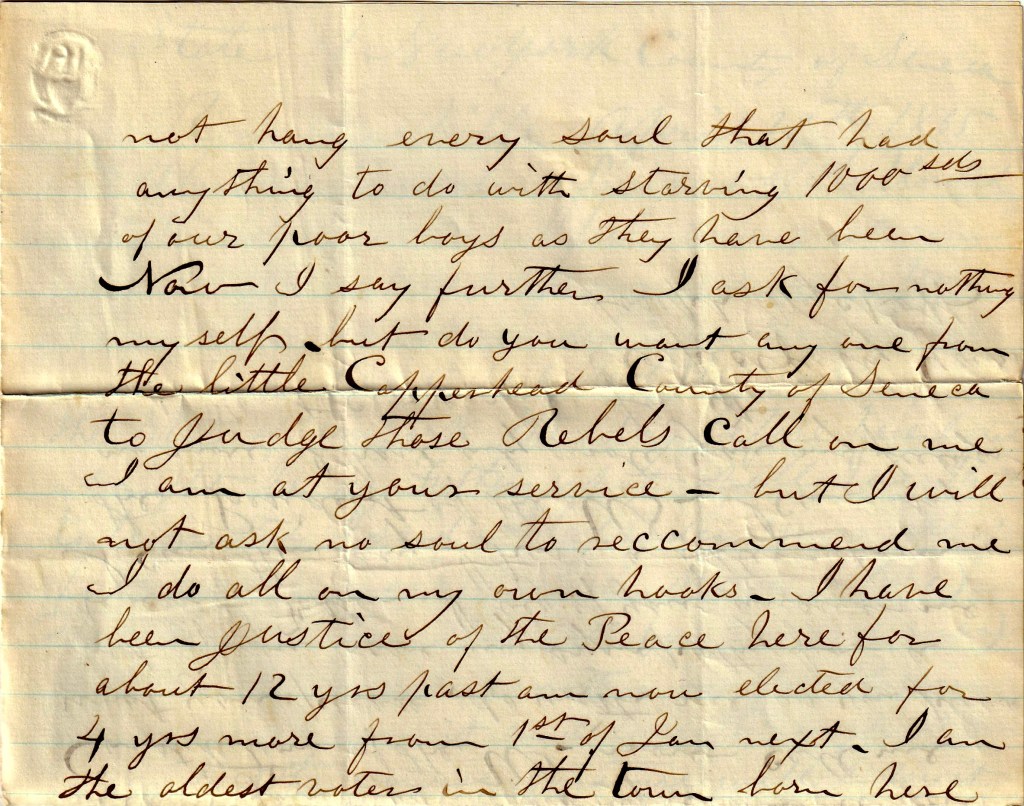 not hang every soul that had
anything to do with starving 1000sds
of our poor boys as they have been
Now I say further I ask for nothing
myself. but do you want any one from
the little Copperhead County of Seneca
to judge those Rebels Call on me
I am at your service – but I will
not ask no soul to reccommend me
I do all on my own hooks. I have
been justice of the Peace here for
about 12 yrs past am now elected for
4 yrs more from 1st of Jan next. I am
the oldest voters in the town born here